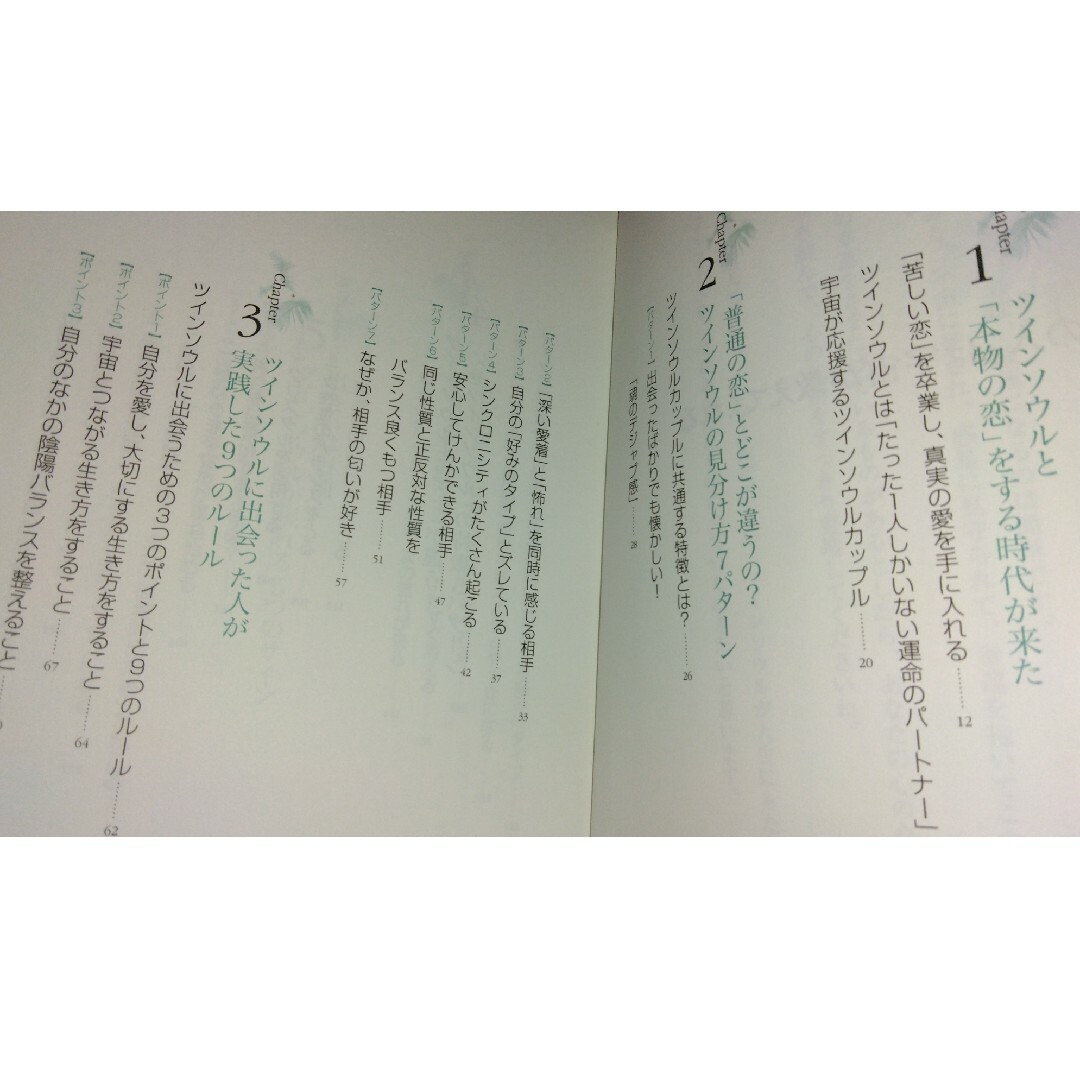 Chapter
1
ツインソウルと
「本物の恋」をする時代が来た
「苦しい恋」を卒業し、真実の愛を手に入れる………12
ツインソウルとは「たった1人しかいない運命のパートナー」
宇宙が応援するツインソウルカップル………20
Chapter
2
「普通の恋」とどこが違うの?
ツインソウルの見分け方7パターン
ツインソウルカップルに共通する特徴とは?………26
【パターン1】出会ったばかりでも懐かしい!
「魂のデジャブ感」………28
【パターン2】「深い愛着」と「怖れ」を同時に感じる相手………33
【パターン3】自分の「好みのタイプ」とズレている………37
【パターン4】シンクロニシティがたくさん起こる………42
【パターン5】安心してけんかできる相手………47
【パターン6】同じ性質と正反対な性質を
バランス良くもつ相手………51
【パターン7】なぜか、相手の匂いが好き………57
Chapter
3
ツインソウルに出会った人が
実践した9つのルール
ツインソウルに出会うための3つのポイントと9つのルール………62
【ポイント1】自分を愛し、大切にする生き方をすること………64
【ポイント2】宇宙とつながる生き方をすること………67
【ポイント3】自分のなかの陰陽バランスを整えること